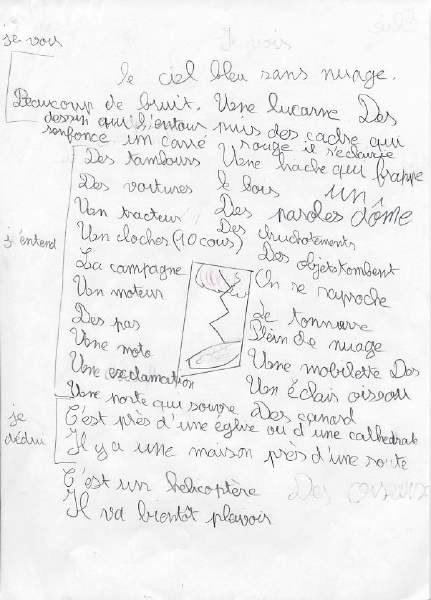 je vois
le ciel bleu sans nuage.
Beaucoup de bruit. Une lucarne Des
dessin qui l'entour puis des cadre qui
senfonce un carré rouge il s'eclaircie
Des tambours Une hache qui frappe
Des voitures le bois un
Un tracteur Des paroles dôme
j'entend
Un cloches (10 cous) Des chuchotements
La campagne Des objets tombent
Un moteur On se raproche
Des pas Le tonnerre
Une moto Plein de nuage
Une exclamation Une mobilette Des
Une porte qui souvre Un Éclais oiseau
je dédui
Des canard
C'est près d'une église ou d'une cathedrale
Il y a une maison près d'une route
C'est un helicoptère
Des oiseau
Il va bientôt pleuvoir